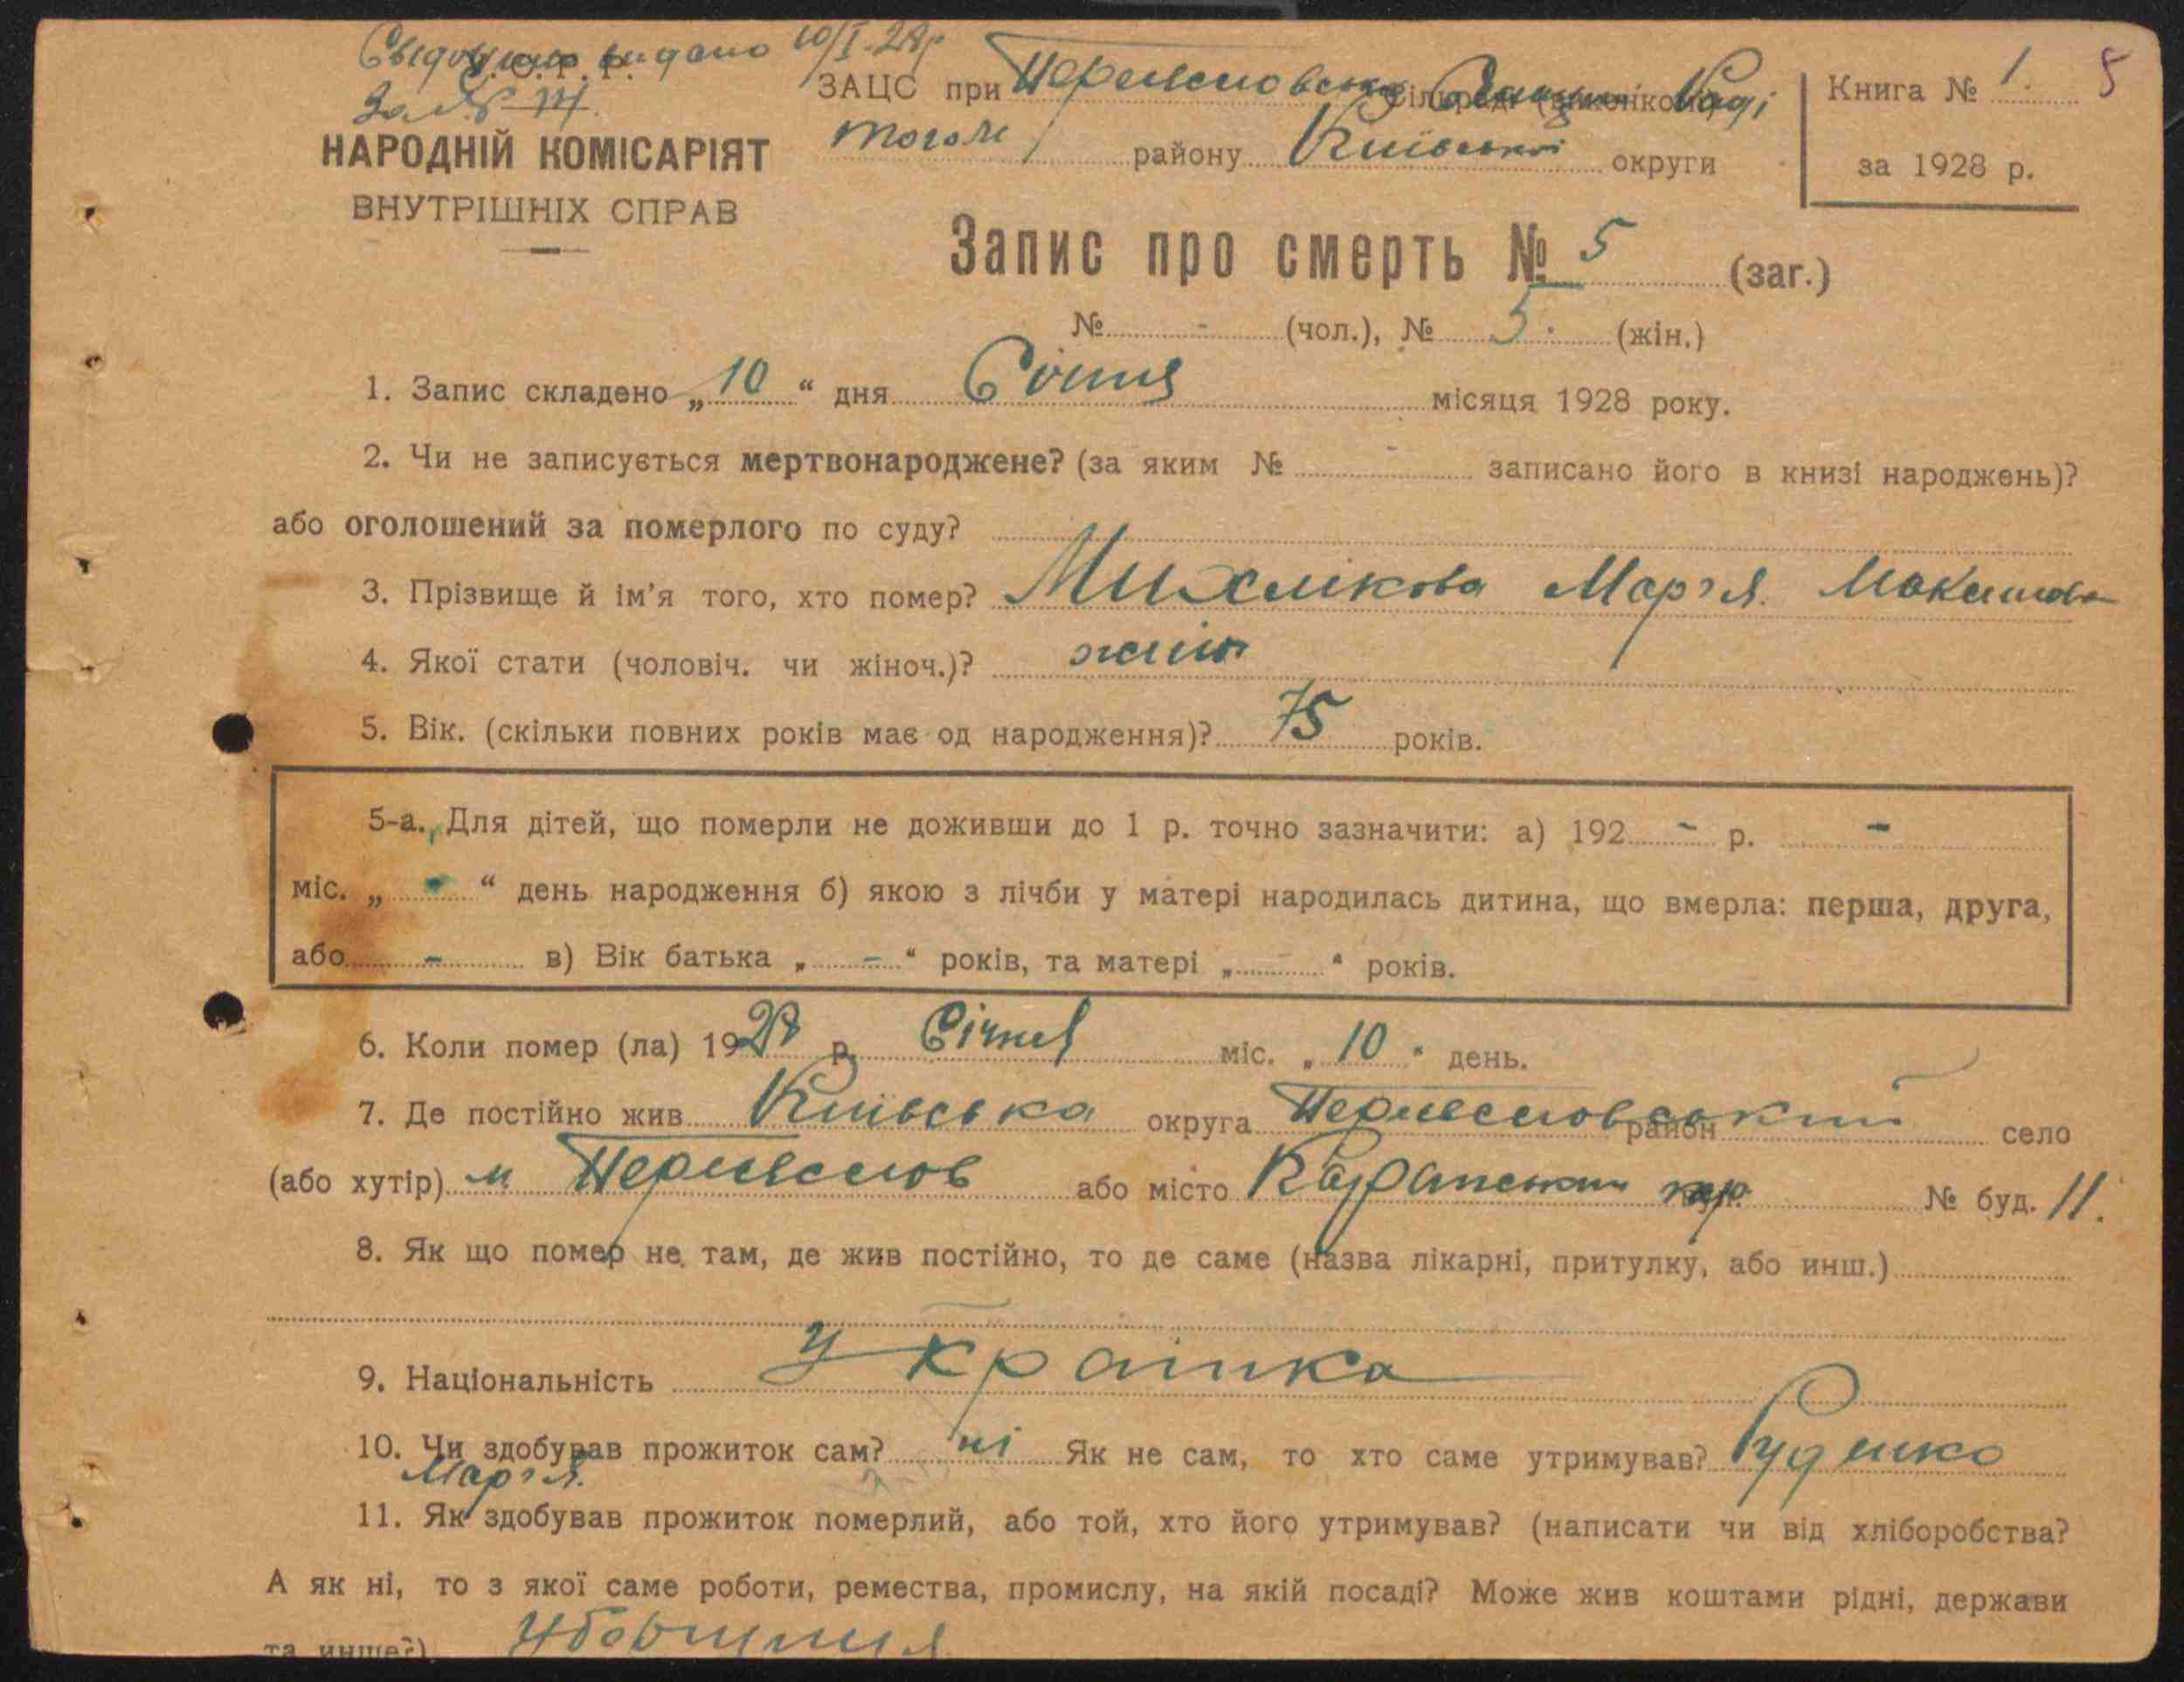 Свідоцтво видано 10/I-28р
За № 14.
У. С. Р. Р.
НАРОДНІЙ КОМІСАРІЯТ
ВНУТРІШНІХ СПРАВ
ЗАЦС при сільраді (виконкомі) Раді
того ж району Київської округи
Книга № 1. 5
за 1928 р.
Запис про смерть № 5 (заг.)
№ - (чол.), № 5. (жін.)
1. Запис складено „10“ дня Січня місяця 1928 року.
2. Чи не записується мертвонароджене? (за яким № - записано його в книзі народжень)?
або оголошений за померлого по суду?
3. Прізвище й ім'я того, хто помер? Мар'я
4. Якої стати (чоловіч. чи жіноч.)? жіноч
5. Вік. (скільки повних років має од народження)? 75 років.
5-а. Для дітей, що померли не доживши до 1 р. точно зазначити: а) 192 - р. -
міс. „ - “ день народження б) якою з лічби у матері народилась дитина, що вмерла: перша, друга,
або - в) Вік батька „ - “ років, та матері „ - “ років.
6. Коли помер (ла) 1928 р. Січня міс. „10“ день.
7. Де постійно жив Київська округа Переяславський район село
(або хутір) м Переяслов або місто вул. № буд. 11.
8. Як що помер не там, де жив постійно, то де саме (назва лікарні, притулку, або инш.)
9. Національність Українка
10. Чи здобував прожиток сам? ні Як не сам, то хто саме утримував? Руденко
Мар'я.
11. Як здобував прожиток померлий, або той, хто його утримував? (написати чи від хліборобства?
А як ні, то з якої саме роботи, ремества, промислу, на якій посаді? Може жив коштами рідні, держави
та инше?)